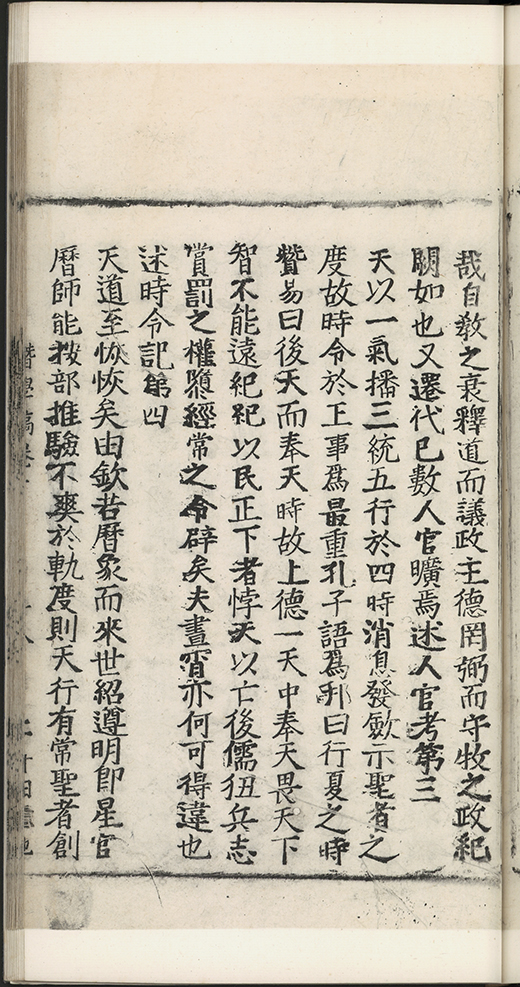 哉自教之衰釋道而議政主德罔弼而守牧之政紀
闕如也又遷代已數人官曠焉述人官考第三
天以一氣播三統五行於四時消息發斂示聖者之
度故時令於王事爲最重孔子語爲邦曰行夏之時
贊易曰後天而奉天時故上德一天中奉天畏天下
智不能遠紀紀以民正下者悖天以亡後儒狃兵志
賞罰之權隳經常之令辟矣夫晝宵亦何可得違也
述時令記第四
天道至恢恢矣由欽若曆象而來世紹遵明卽星官
曆師能按部推驗不爽於軌度則天行有常聖者創